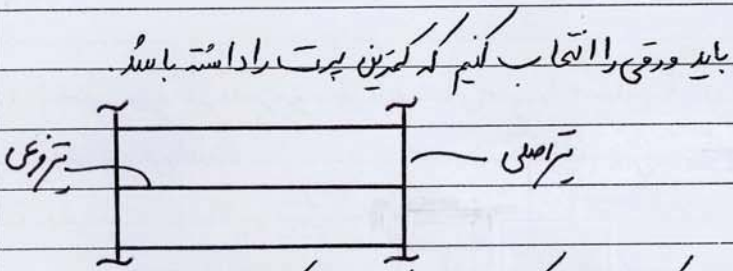 باید ورقی را انتخاب کنیم که کمترین پرت را داشته باشد.
تیر اصلی
تیر فرعی